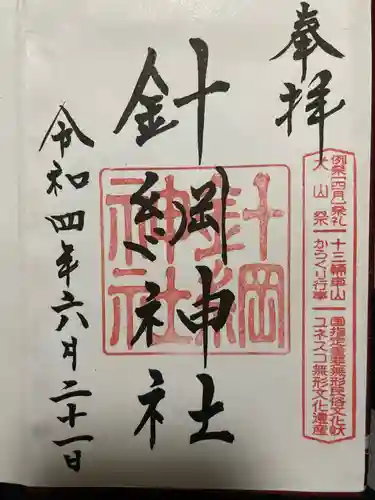 奉拝
例祭(四月)祭礼 十三輌車山 国指定重要無形民俗文化財
犬山祭 からくり行事 ユネスコ無形文化遺産
針綱神社
針綱
神社
令和四年六月二十一日